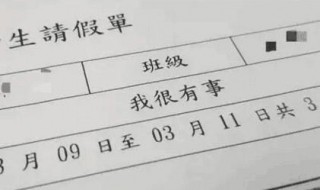 生請假單
班級
我很有事
月 09 日至 03 月 11 日共 3